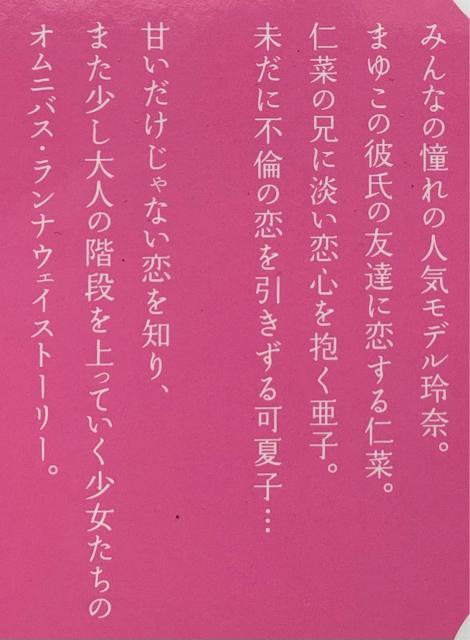 みんなの憧れの人気モデル玲奈。
まゆこの彼氏の友達に恋する仁菜。
仁菜の兄に淡い恋心を抱く亜子。
未だに不倫の恋を引きずる可夏子…
甘いだけじゃない恋を知り、
また少し大人の階段を上っていく少女たちの
オムニバス・ランナウェイストーリー。